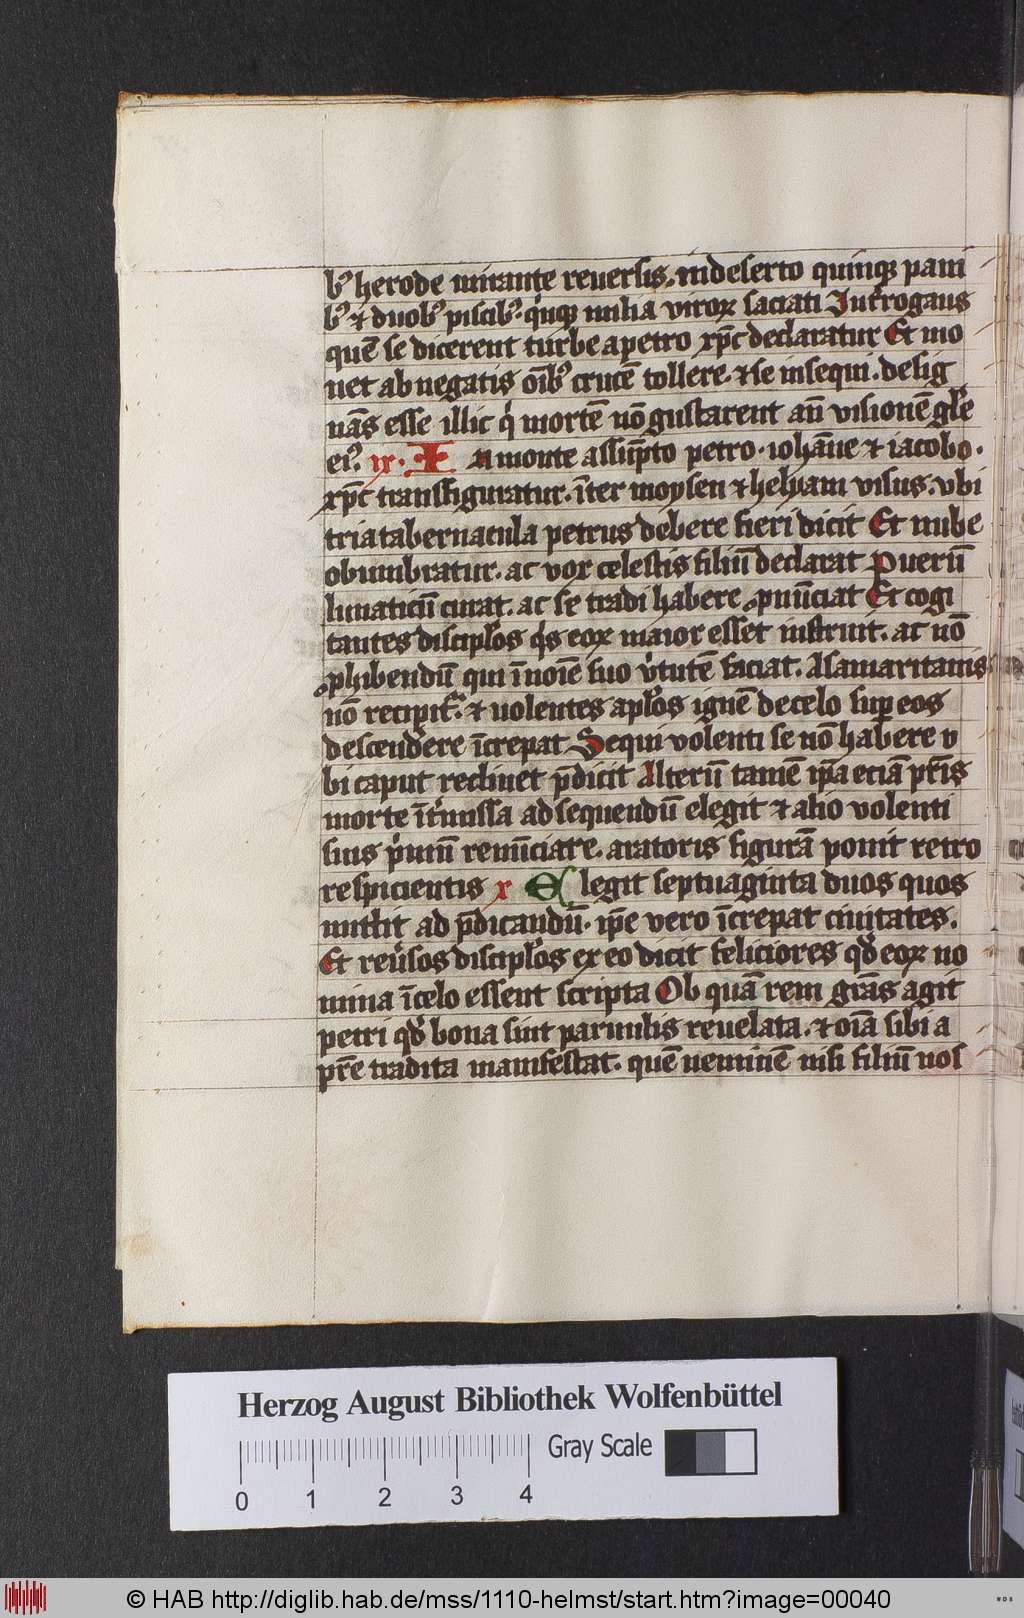 bꝰ herode mirante reuersis. in deserto quinqꝫ pani
bꝰ ⁊ duobꝰ piscibꝰ. qͥnqꝫ milia viroꝝ saciati Int̾rogans
quē se dicerent turbe a petro xp̄c declaratur Et mo
net abnegatis oīb̄ꝰ crucē tollere. ⁊ se insequi. desig
nās esse illic qͥ mortē nō gustarent an̄ visionē gl̄e
eiꝰ. ix. In monte assūpto petro. iohāne ⁊ iacobo.
xp̄c transfiguratur. īter moysen ⁊ helyam visus. vbi
tria tabernacula petrus debere fieri dicit Et nube
obumbratur. ac vox celestis filiū declarat Puerū
lunaticū curat. ac se tradi habere ꝓnūciat Et cogi
tantes discipl̄os qͥs eoꝝ maior esset instruit. ac nō
ꝓhibendū qui ī noīe suo v̓tutē faciat. A samaritanis
nō recipit᷑. ⁊ volentes apl̄os ignē de celo suꝑ eos
descendere īcrepat Sequi volenti se nō habere v
bi caput reclinet p̄dicit Alterū tamē ip̄a eciā pr̄is
morte īt̓missa ad sequendū elegit ⁊ alio volenti
suis pͥmū renūciare. aratoris figurā ponit retro
respicientis x Elegit septuaginta duos quos
mittit ad p̄dicandū. ip̄e vero īcrepat ciuitates.
Et reu̓sos discipl̄os ex eo dicit feliciores qd̓ eoꝝ no
mina ī celo essent scripta Ob quā rem grās agit
petri qd̓ bona sint paruulis reuelata. ⁊ oīa sibi a
pr̄e tradita manifestat. quē neminē nisi filiū nos
Herzog August Bibliothek Wolfenbüttel
Gray Scale
0 1 2 3 4
© HAB http://diglib.hab.de/mss/1110-helmst/start.htm?image=00040